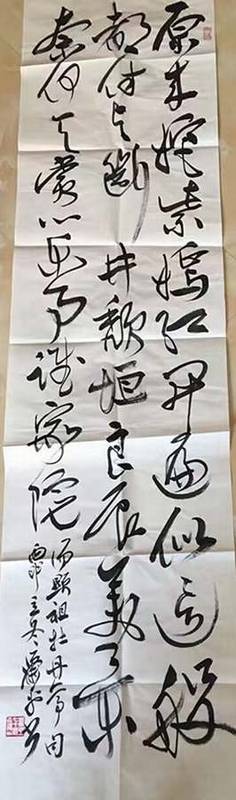 原來姹紫嫣紅開遍似這般
都付與斷井頹垣良辰美景
奈何天賞心樂事誰家院
湯顯祖牡丹亭句
丙申立冬
書